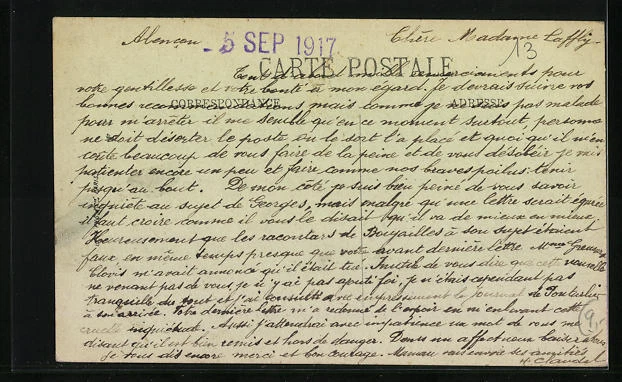 Alençon
- 5 SEP 1917
Chère Madame Laffly
13
CARTE POSTALE
Tout d'abord mille remerciements pour
votre gentillesse et votre bonté à mon égard. Je devrais suivre vos
CORRESPONDANCE
ADRESSE
bonnes recommandations mais comme je suis pas malade
pour m'arrêter il me semble qu'en ce moment surtout personne
ne doit déserter le poste où le sort l'a placé et quoi qu'il m'en
coûte beaucoup de vous faire de la peine et de vous désobéir je
patienter encore un peu et faire comme nos braves poilus tenir
jusqu'au bout. De mon côté je suis bien peiné de vous savoir
inquiète au sujet de Georges, mais malgré qu'une lettre serait égarée
il faut croire comme il vous le disait qu'il va de mieux en mieux.
Heureusement que les racontars de à son sujet étaient
faux, en même temps presque que votre avant dernière lettre Mme
Clovis m'avait annoncé qu'il était tué. Inutile de vous dire que cette nouvelle
ne venant pas de vous, je n'y ai pas ajouté foi, je n'étais cependant pas
tranquille du tout et j'ai consulté avec empressement le Journal de Pontarlier
à son arrivée. Votre dernière lettre m'a redonné de l'espoir en m'enlevant cette
cruelle inquiétude. Aussi j'attendrai avec impatience un mot de vous me
disant qu'il est bien remis et hors de danger. Dans un affectueux baiser
je vous dis encore merci et bon courage. Maman vous envoie ses amitiés
H. Claudel